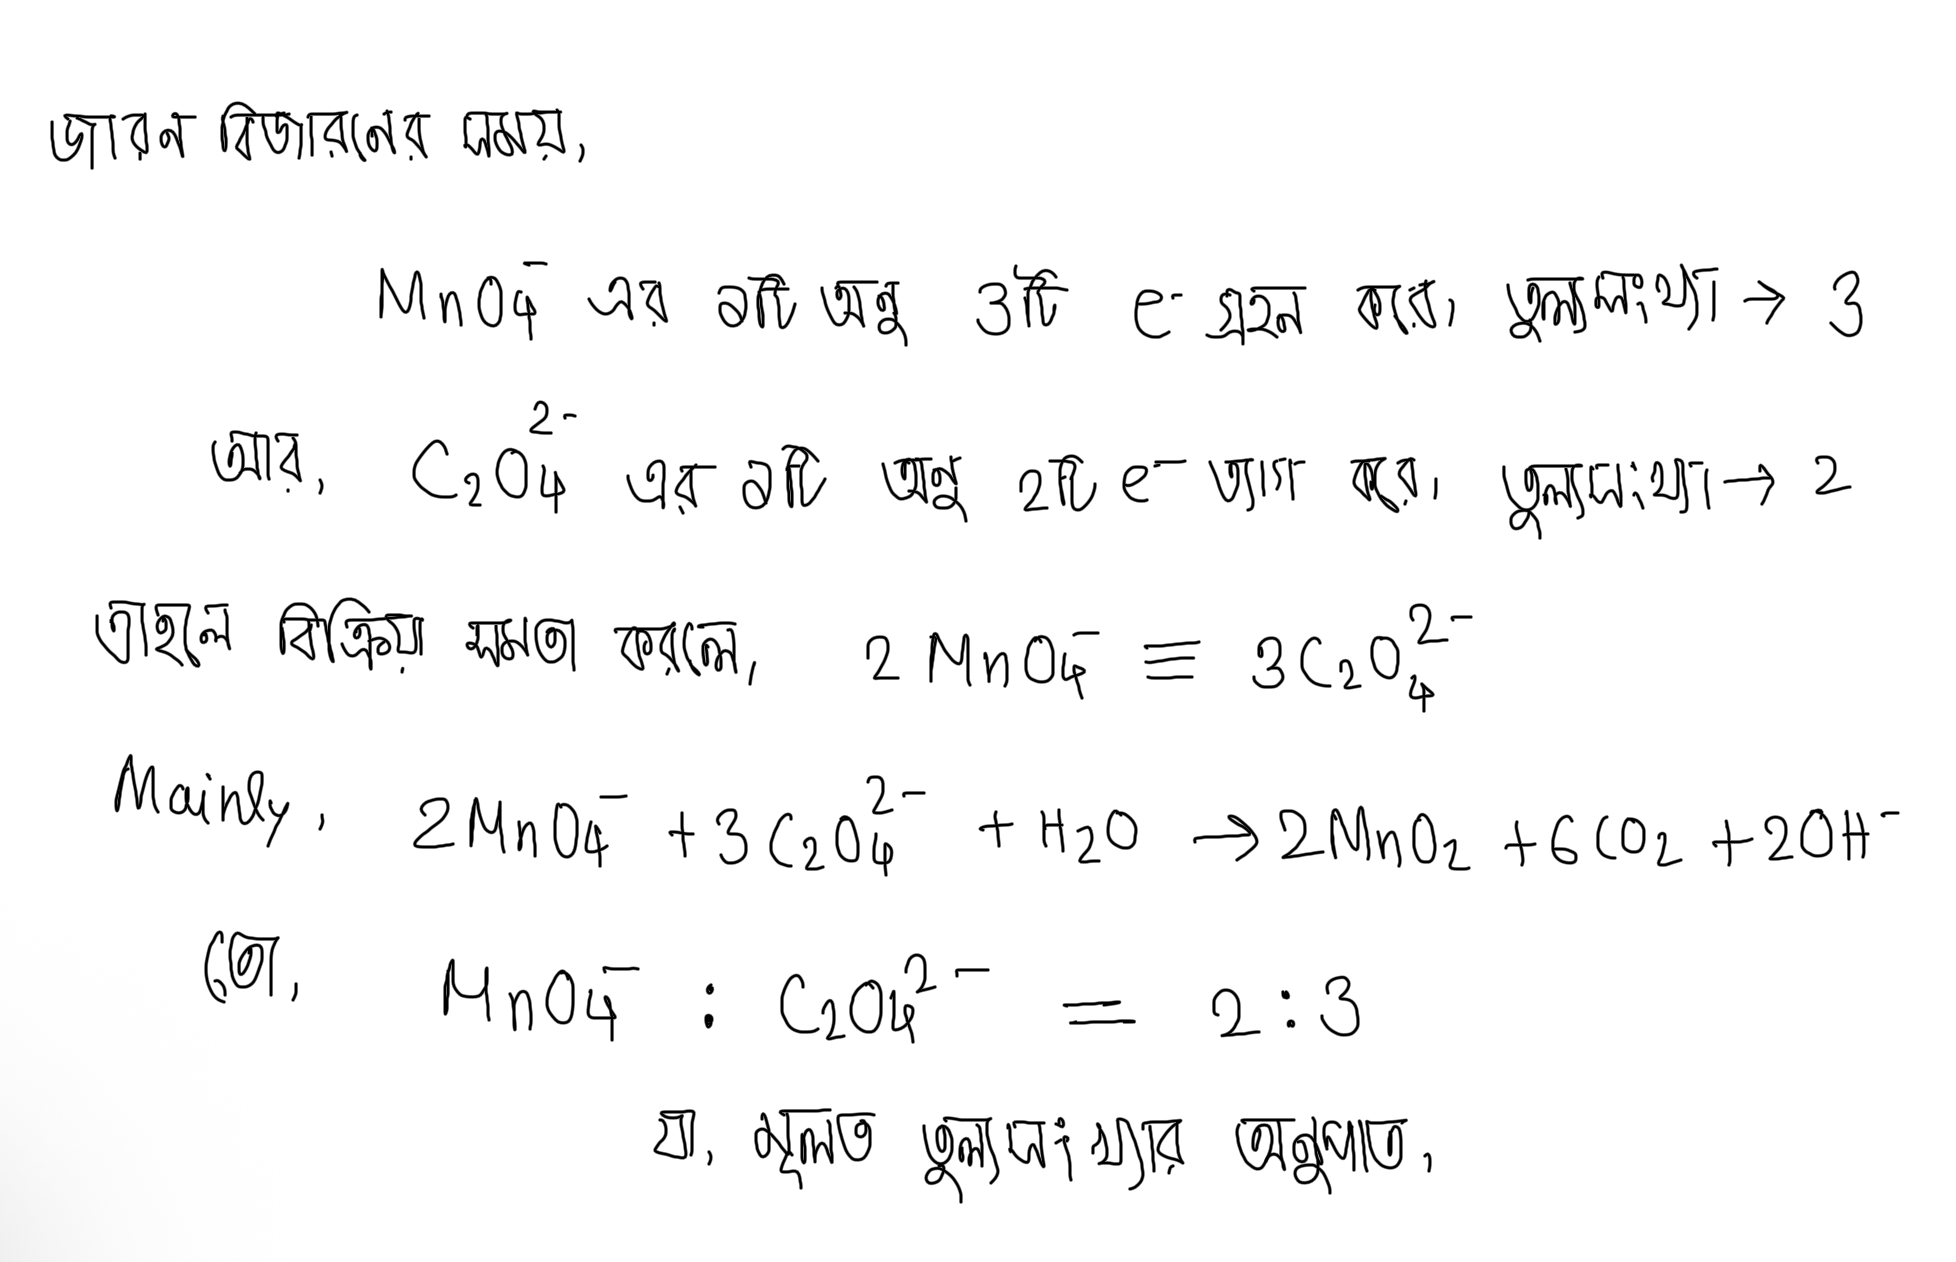 জারন বিজারনের সময়,
MnO₄⁻ এর ১টি অনু 3টি e⁻ গ্রহন করে, তুল্যসংখ্যা → 3
আর, C₂O₄²⁻ এর ১টি অনু 2টি e⁻ ত্যাগ করে, তুল্যসংখ্যা → 2
তাহলে বিক্রিয়া সমতা করলে, 2 MnO₄⁻ ≡ 3C₂O₄²⁻
Mainly, 2MnO₄⁻ + 3C₂O₄²⁻ + H₂O → 2MnO₂ + 6CO₂ + 2OH⁻
তো, MnO₄⁻ : C₂O₄²⁻ = 2 : 3
যা, মূলত তুল্যসংখ্যার অনুপাত,